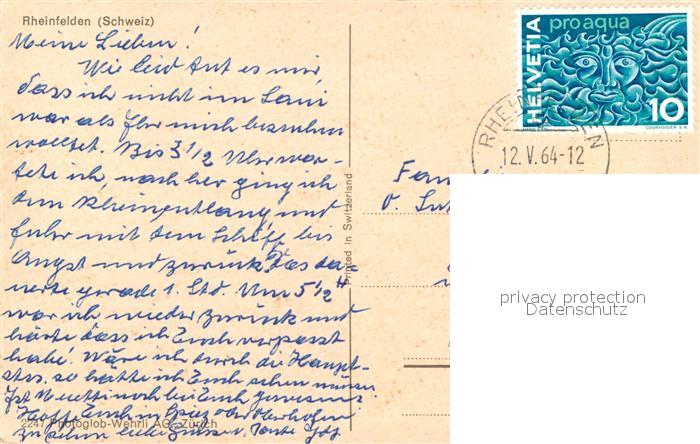 Rheinfelden (Schweiz)
Meine Lieben!
Wie leid tut es mir,
dass ich nicht im Sani
war als Ihr mich besuchen
wolltet. Bis 3 1/2 Uhr war-
tete ich, nachher ging ich
dem Rhein entlang und
fuhr mit dem Schiff bis
Augst und zurück. Das dau-
erte gerade 1. Std. Um 5 1/2 h
war ich wieder zurück und
hörte dass ich Euch verpasst
habe! Wäre ich durch die Haupt-
stra. so hätte ich Euch sehen müssen.
Ist Muetti noch bei Euch gewesen?
Hoffe Euch in Spiez oder Oberhofen
zu sehen. liebe Grüsse v. Tante
2247 Photoglob-Wehrli AG, Zürich
Printed in Switzerland
HELVETIA
pro aqua
10
COURVOISIER S.A.
RHEINFELDEN
12.V.64-12
Fam
privacy protection
Datenschutz